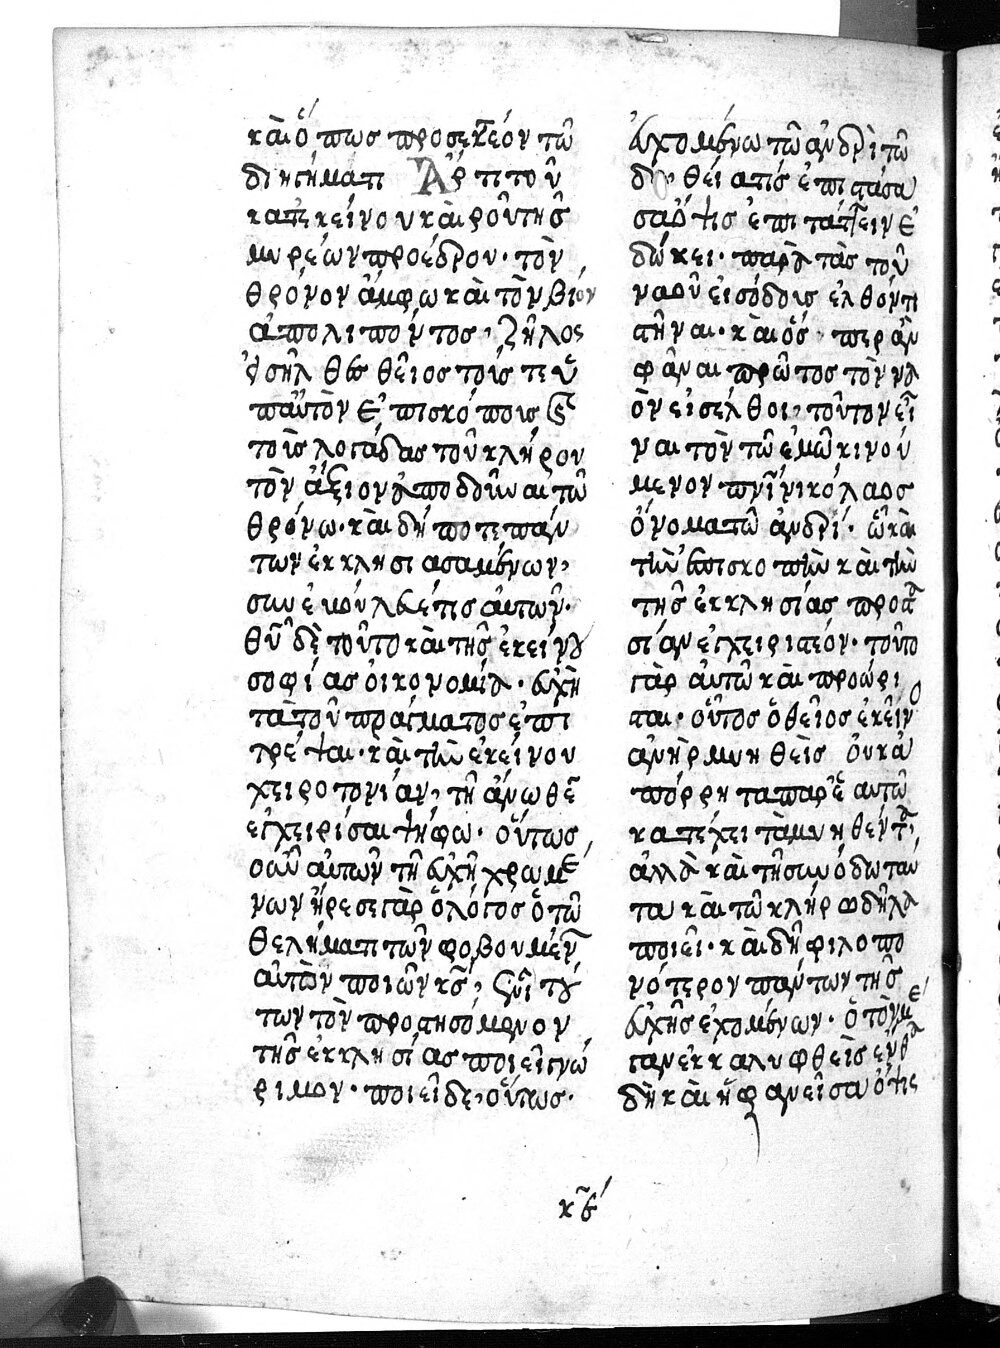 καὶ ὅπως προσεκτέον τῷ
διηγήματι Ἄρτι τοῦ
κατ' ἐκείνου καιροῦ τῆς
μυρέων προέδρου· τὸν
θρόνον ἅμφω καὶ τὸν βίον
ἀπολιπόντος, ζῆλος
εἰσῆλθε θεῖος τοῖς τε ὑ
π' αὐτὸν ἐπισκόποις καὶ
τοῖς λογάδας τοῦ κλήρου
τὸν ἄξιον ἀποδοῦναι τῷ
θρόνῳ· καὶ δή ποτε πάν
των ἐκκλησιασαμένων,
συνεβούλευέ τις αὐτῶν·
θεοῦ δὲ τοῦτο καὶ τῆς ἐκείνου
σοφίας οἰκονομία· εὐχῇ
τὰ τοῦ πράγματος ἐπι
τρέψαι· καὶ τὴν ἐκείνου
χειροτονίαν, τῇ ἄνωθεν
ἐγχειρίσαι ψήφῳ· οὕτως
οὖν αὐτῶν τῇ εὐχῇ χρωμέ
νων ἤρεσε γὰρ ὁ λόγος ὁ τῷ
θέλημα τῶν φοβουμένων
αὐτὸν ποιῶν κς, ἑνὶ τού
των τὸν προστησόμενον
τῆς ἐκκλησίας ποιεῖ γνώ
ριμον· ποιεῖ δε, οὕτως·
εὐχομένῳ τῷ ἀνδρὶ τῷ
δε, θεία τίς ἐπιστᾶσα
σα ὄψις ἐπιτάττειν ἐ
δώκει· παρὰ τὰς τοῦ
ναοῦ εἰσόδοις ἐλθόντι
στῆναι· καὶ ὅς, περ ἂν
φάναι πρῶτος τὸν να
ὸν εἰσέλθοι, τοῦτον εἶ
ναι τὸν τῷ ἐμῷ κινού
μενον πνι νικόλαος
ὄνομα τῷ ἀνδρί· ᾧ καὶ
τὴν ἐπισκοπὴν καὶ τὴν
τῆς ἐκκλησίας προστα
σίαν ἐγχειριστέον· τοῦτο
γὰρ αὐτῷ καὶ προώρι
σται· οὕτος ὁ θεῖος ἐκεῖνος
ἀνὴρ μυηθεὶς οὐκ ἀ
πόρρητα παρ' ἑαυτῷ
κατέχει τὰ μυηθέντα,
ἀλλὰ καὶ τῇ συνόδῳ ταύ
τα καὶ τῷ κλήρῳ δῆλα
ποιεῖ· καὶ δὴ φιλοπο
νότερον πάντων τῆς
εὐχῆς ἐχομένων· ὁ τὸν με
γαν ἐκκαλυφθεὶς ἔνθα
δὴ καὶ ἡ φανεῖσα ὄψις
κβ